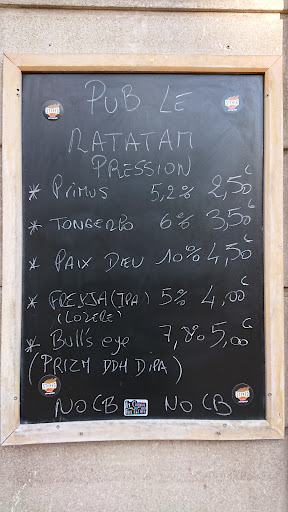 PUB LE
RATATAM
PRESSION
* PRIMUS 5,2% 2,50€
* TONGERLO 6% 3,50€
* PAIX DIEU 10% 4,50€
* FREYJA (IPA) 5% 4,00€
(LOZERE)
* Bull's eye 7,8% 5,00€
(PRIZM DDH DIPA)
NO CB NO CB